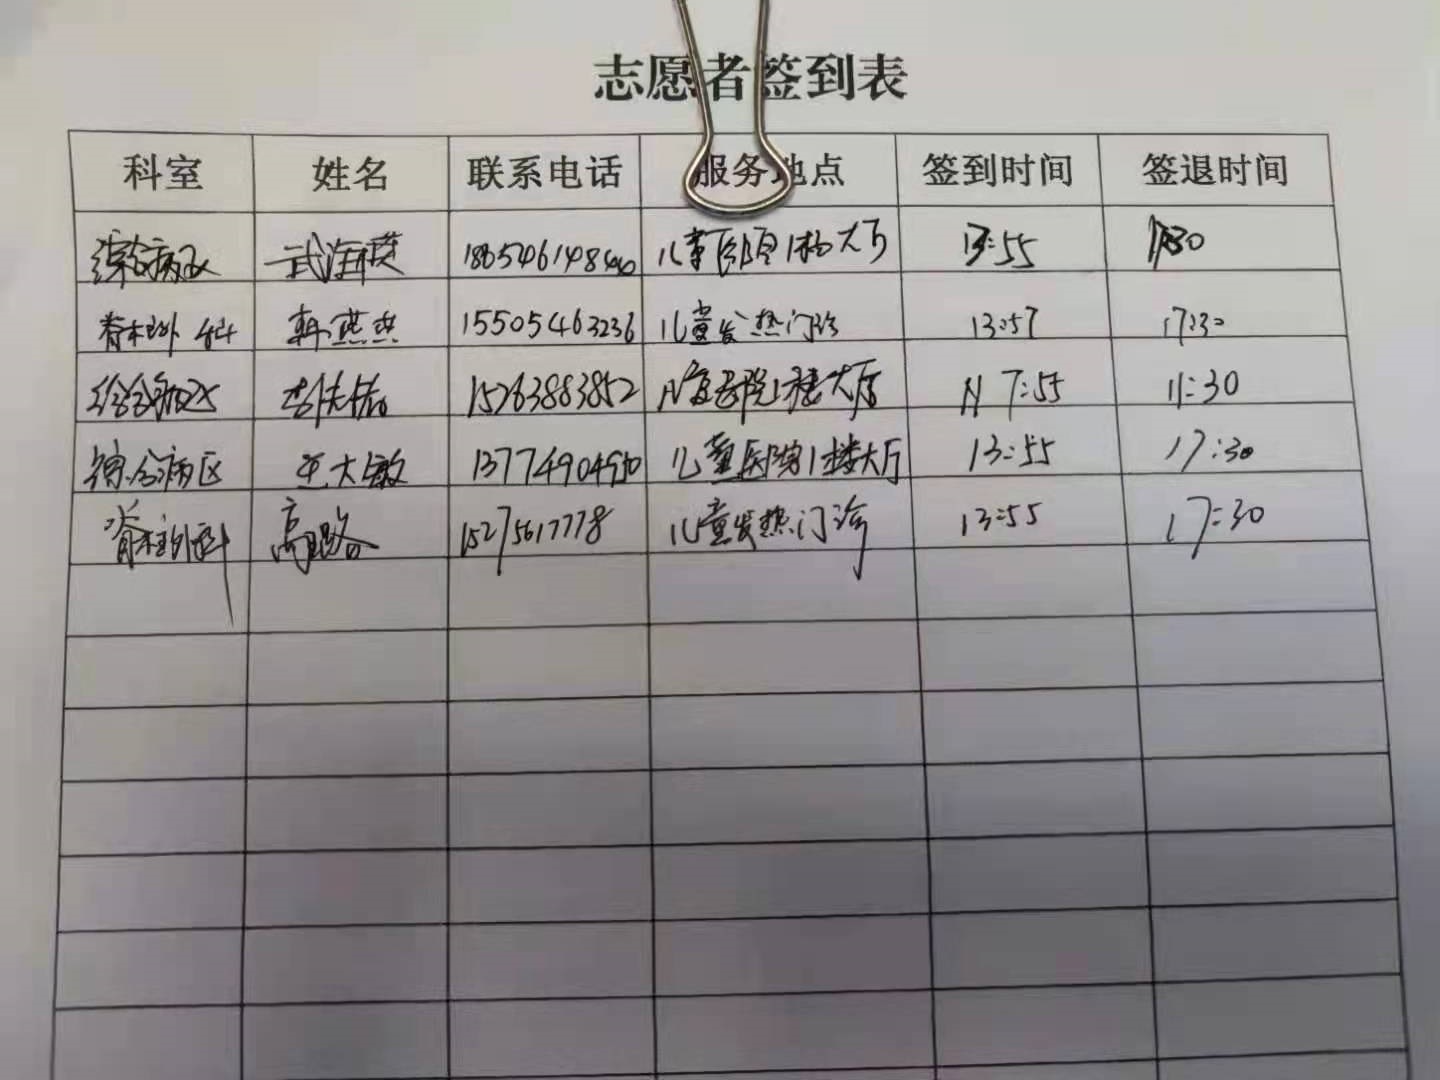 志愿者签到表
科室 姓名 联系电话 服务地点 签到时间 签退时间
综合病区 武海燕 儿童医院1楼大厅 13:55
脊柱外科 韩燕燕 15505463236 儿童发热门诊 13:57 17:30
综合病区 15263883852 儿童医院1楼大厅 7:55 11:30
综合病区 王大敏 儿童医院1楼大厅 13:55 17:30
脊柱外科 高璐 15275617778 儿童发热门诊 13:55 17:30